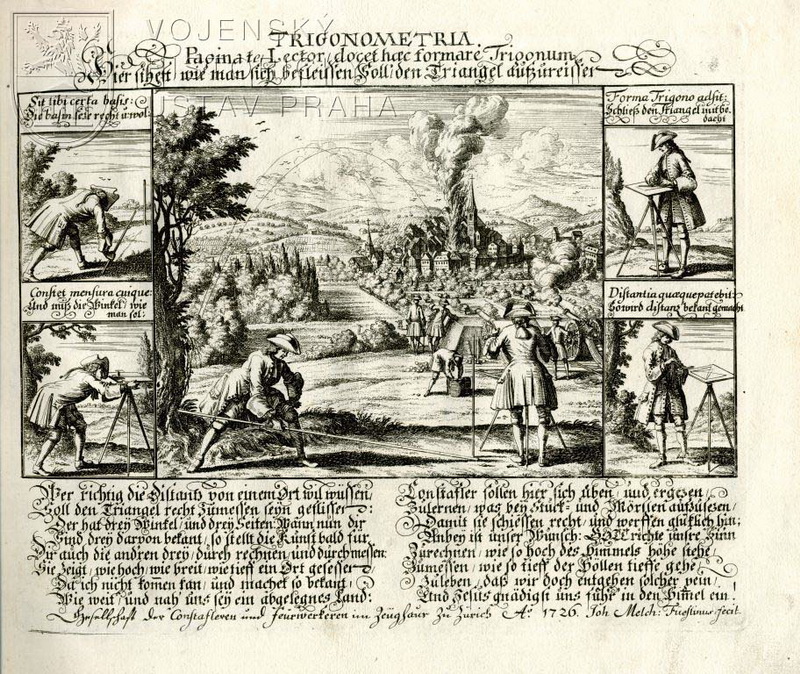 VOJENSKÝ
ÚSTAV PRAHA
TRIGONOMETRIA.
Pagina te, Lector, docet hæc formare Trigonum.
Hier sihest, wie man sich befleissen Soll, den Triangel aufzureissen
Sit tibi certa basis:
Die basin lege recht u: wol:
Forma Trigono adsit:
Schließ den Triangel mit be,
dacht
Constet mensura cuique:
Und miß die Winkel, wie
man sol:
Distantia quæque patebit:
So wird distanz bekant gemacht
Wer richtig die Distantz von einem Ort wil wüssen,
Soll den Triangel recht Zumessen seyn geflissen:
Der hat drey Winkel, und drey Seiten: Wann nun dir
Sind drey darvon bekant, so stellt die Kunst bald für
Dir auch die andren drey, durch rechnen, und durch messen:
Sie Zeigt, wie hoch, wie breit, wie tieff ein Ort gesessen
Da ich nicht kommen kan, und machet so bekant,
Wie weit, und nah uns sey ein abgelegnes Land:
Constafler sollen hier sich üben, und ergezen,
Zulernen, was bey Stuck- und Mörslen aufzulesen,
Damit sie schiessen recht, und werffen glüklich hin;
Anbey ist unser Wunsch: GOTT richte unsre Sinn
Zurechnen, wie so hoch des Himmels höhe stehe,
Zumessen, wie so tieff der Höllen tieffe gehe,
Zuleben, daß wir doch entgehen solcher pein,
Und Jesus gnädigst uns führ in den Himel ein!
Gesellschaft der Constafleren und feurwerkeren im Zeughaus Zu Zürich A: 1726. Joh. Melch: Fuesslinus fecit.